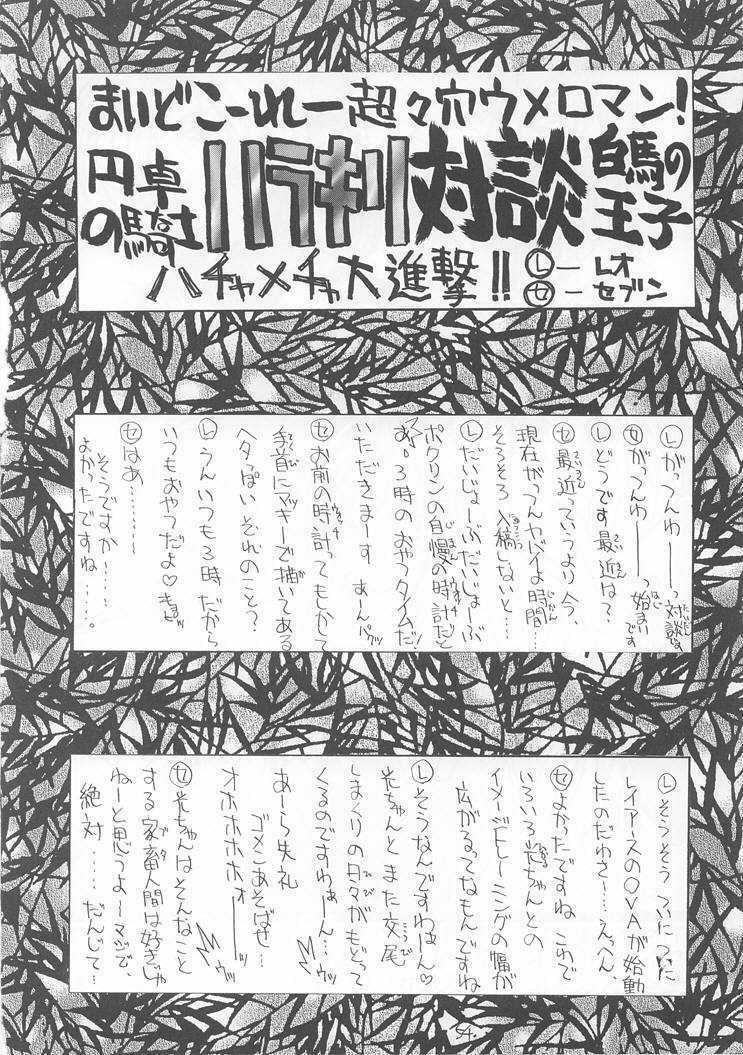 まいどこーれー超々穴ウメロマン!
円卓の騎士 ハラキリ対談 白馬の王子
ハチャメチャ大進撃!! Ⓛ— レオ
㋝— セブン
Ⓛ がっつんわーーっ対談は、
㋝ がっつんわーーっ始まいです
Ⓛ どうです最近は?
㋝ 最近っていうより今、
現在がつんヤバイよ時間…
そろそろ入稿しないと…
Ⓛ だいじょーぶだいじょーぶ
ボクリンの自慢の時計だと
あ、3時のおやつタイムだ!
いただきまーす あーんパクッ
㋝ お前の時計ってもしかして
手首にマッキーで描いてある
ヘタっぴい それのこと?
Ⓛ うんいつも3時だから
いつもおやつだよ♡
㋝ はあ…………
そうですか!……
よかったですね
……。
Ⓛ そうそう ついについに
レイアースのOVAが始動
したのだわさ!…えっへん
㋝ よかったですね これで
いろいろ光ちゃんとの
イメージトレーニングの幅が
広がるってなもんですね
Ⓛ そうなんですわほーん♡
光ちゃんと また交尾
しまくりの日々がもどって
くるのですわぁーん…ウッ
あーら失礼
ゴメンあそばせ…
オホホホホォーーウッ
㋝ 光ちゃんはそんなこと
する家畜人間は好きじゃ
ねーと思うよーマジで、
絶対……だんじて…
54.